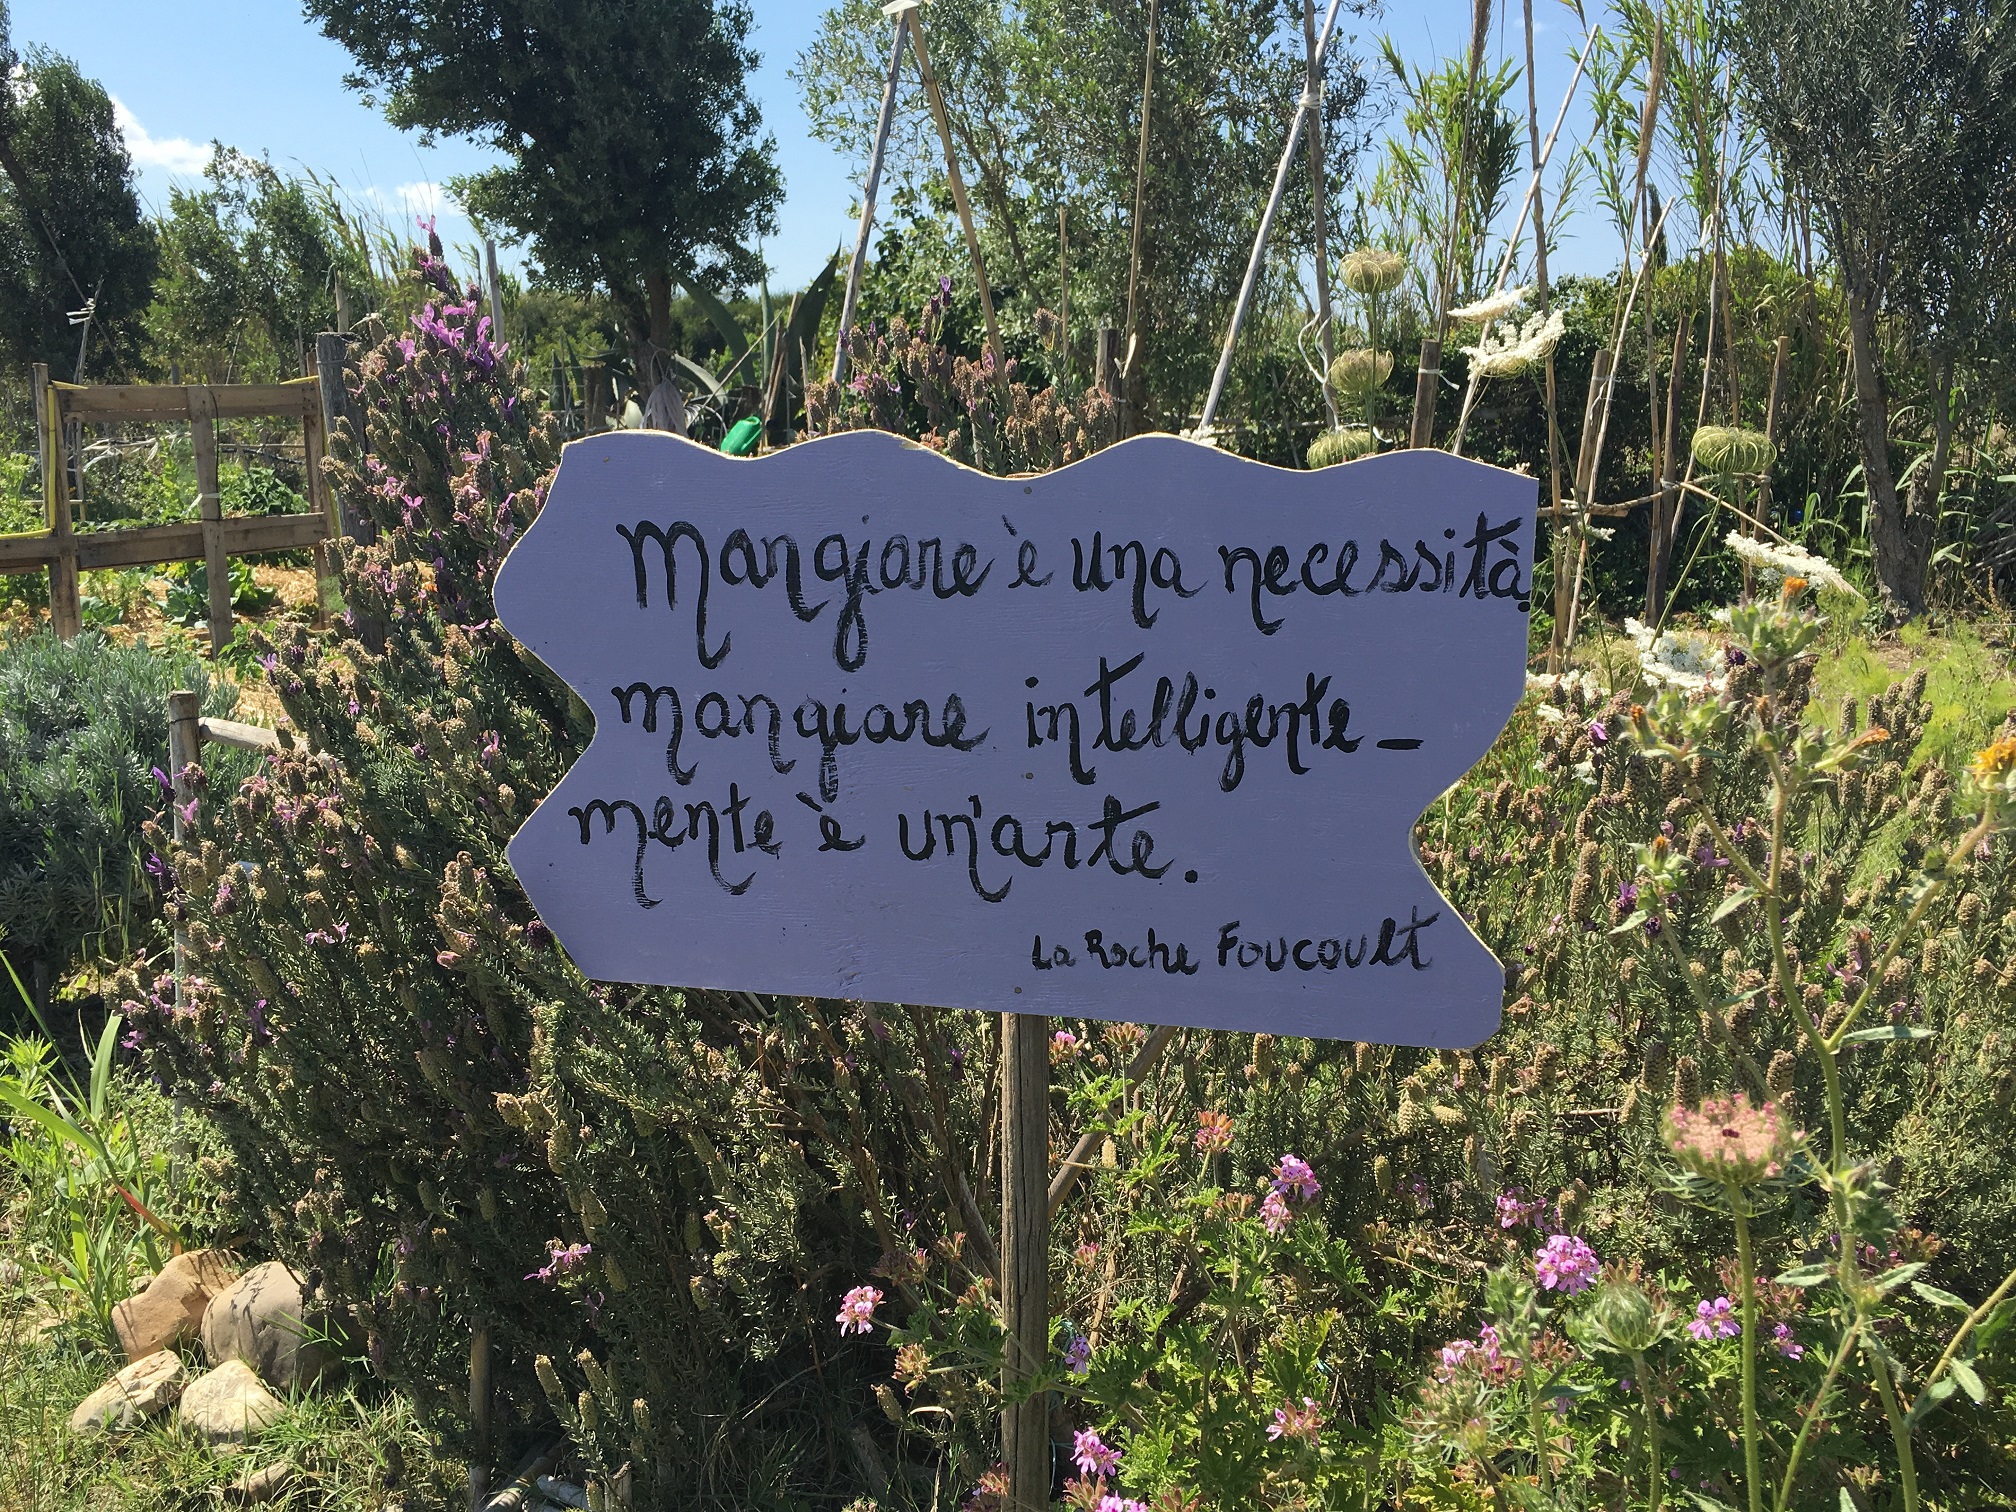 Mangiare è una necessità,
mangiare intelligente-
mente è un'arte.
La Roche Foucoult